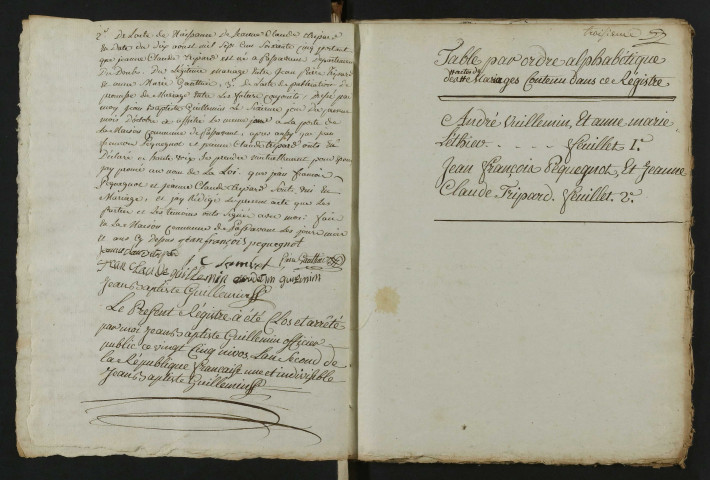 2° De l'acte de Naissance de Jeanne Claude tripard
en date du Dix aoust mil sept cent soixante cinq portant
que jeanne Claude tripard est née a passavant Département
du Doubs, du légitime mariage entre Jean Pierre tripard
et anne Marie Gauthier, 3° de l'acte de publication de
promesse de Mariage entre les futures conjoints, dressé par
moy Jean Baptiste Guillemin le
mois d'octobre et affiché le meme jour a la porte de
la Maison Commune de passavant, apres aussy que jean
francois Pequegnot et jeanne Claude tripard ont eu
Déclaré a haute voix se prendre mutuellement pour epoux
jay prononcé au nom de La Loi, que jean françois
Pequegnot et jeanne Claude tripard sont unis en
Mariage, et jay Rédigé le présent acte que les
parties et les temoins ont signé avec moi. fait
en la Maison Commune de Passavant les jour mois
et ans cy dessus jean françois pequegnot
Pierre Gauthier
jean Claude vuillemin guenin
Jean Baptiste Guillemin
Le Présent Régistre à été Clos et arrêté
par moi Jean Baptiste Guillemin officier
public ce vingt Cinq nivos L'an Second de
la République francaise une et indivisible
Jean Baptiste Guillemin
troisieme
Table par ordre alphabétique
des actes de Mariages Contenu dans ce Régistre
André Vuillemin, Et anne marie
Lethier - - - - feuillet 1.er
Jean François Pequegnot, Et Jeanne
Claude Tripard. feuillet. 2.e